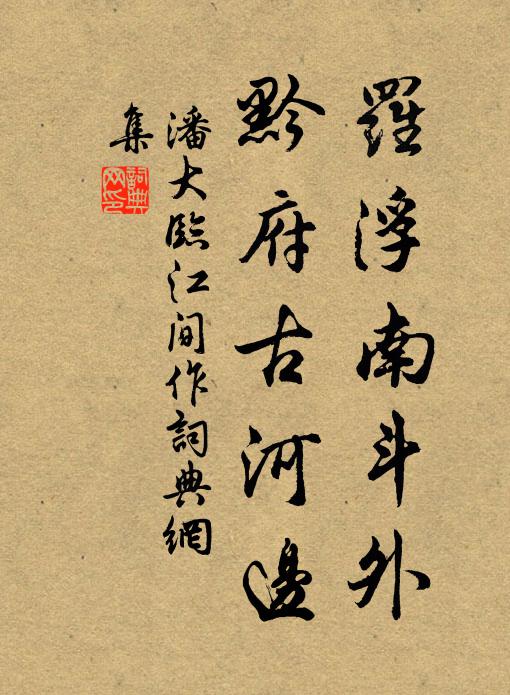 羅浮南斗外
黔府古河邊
潘大臨江間作詞典網
集
詞典網印